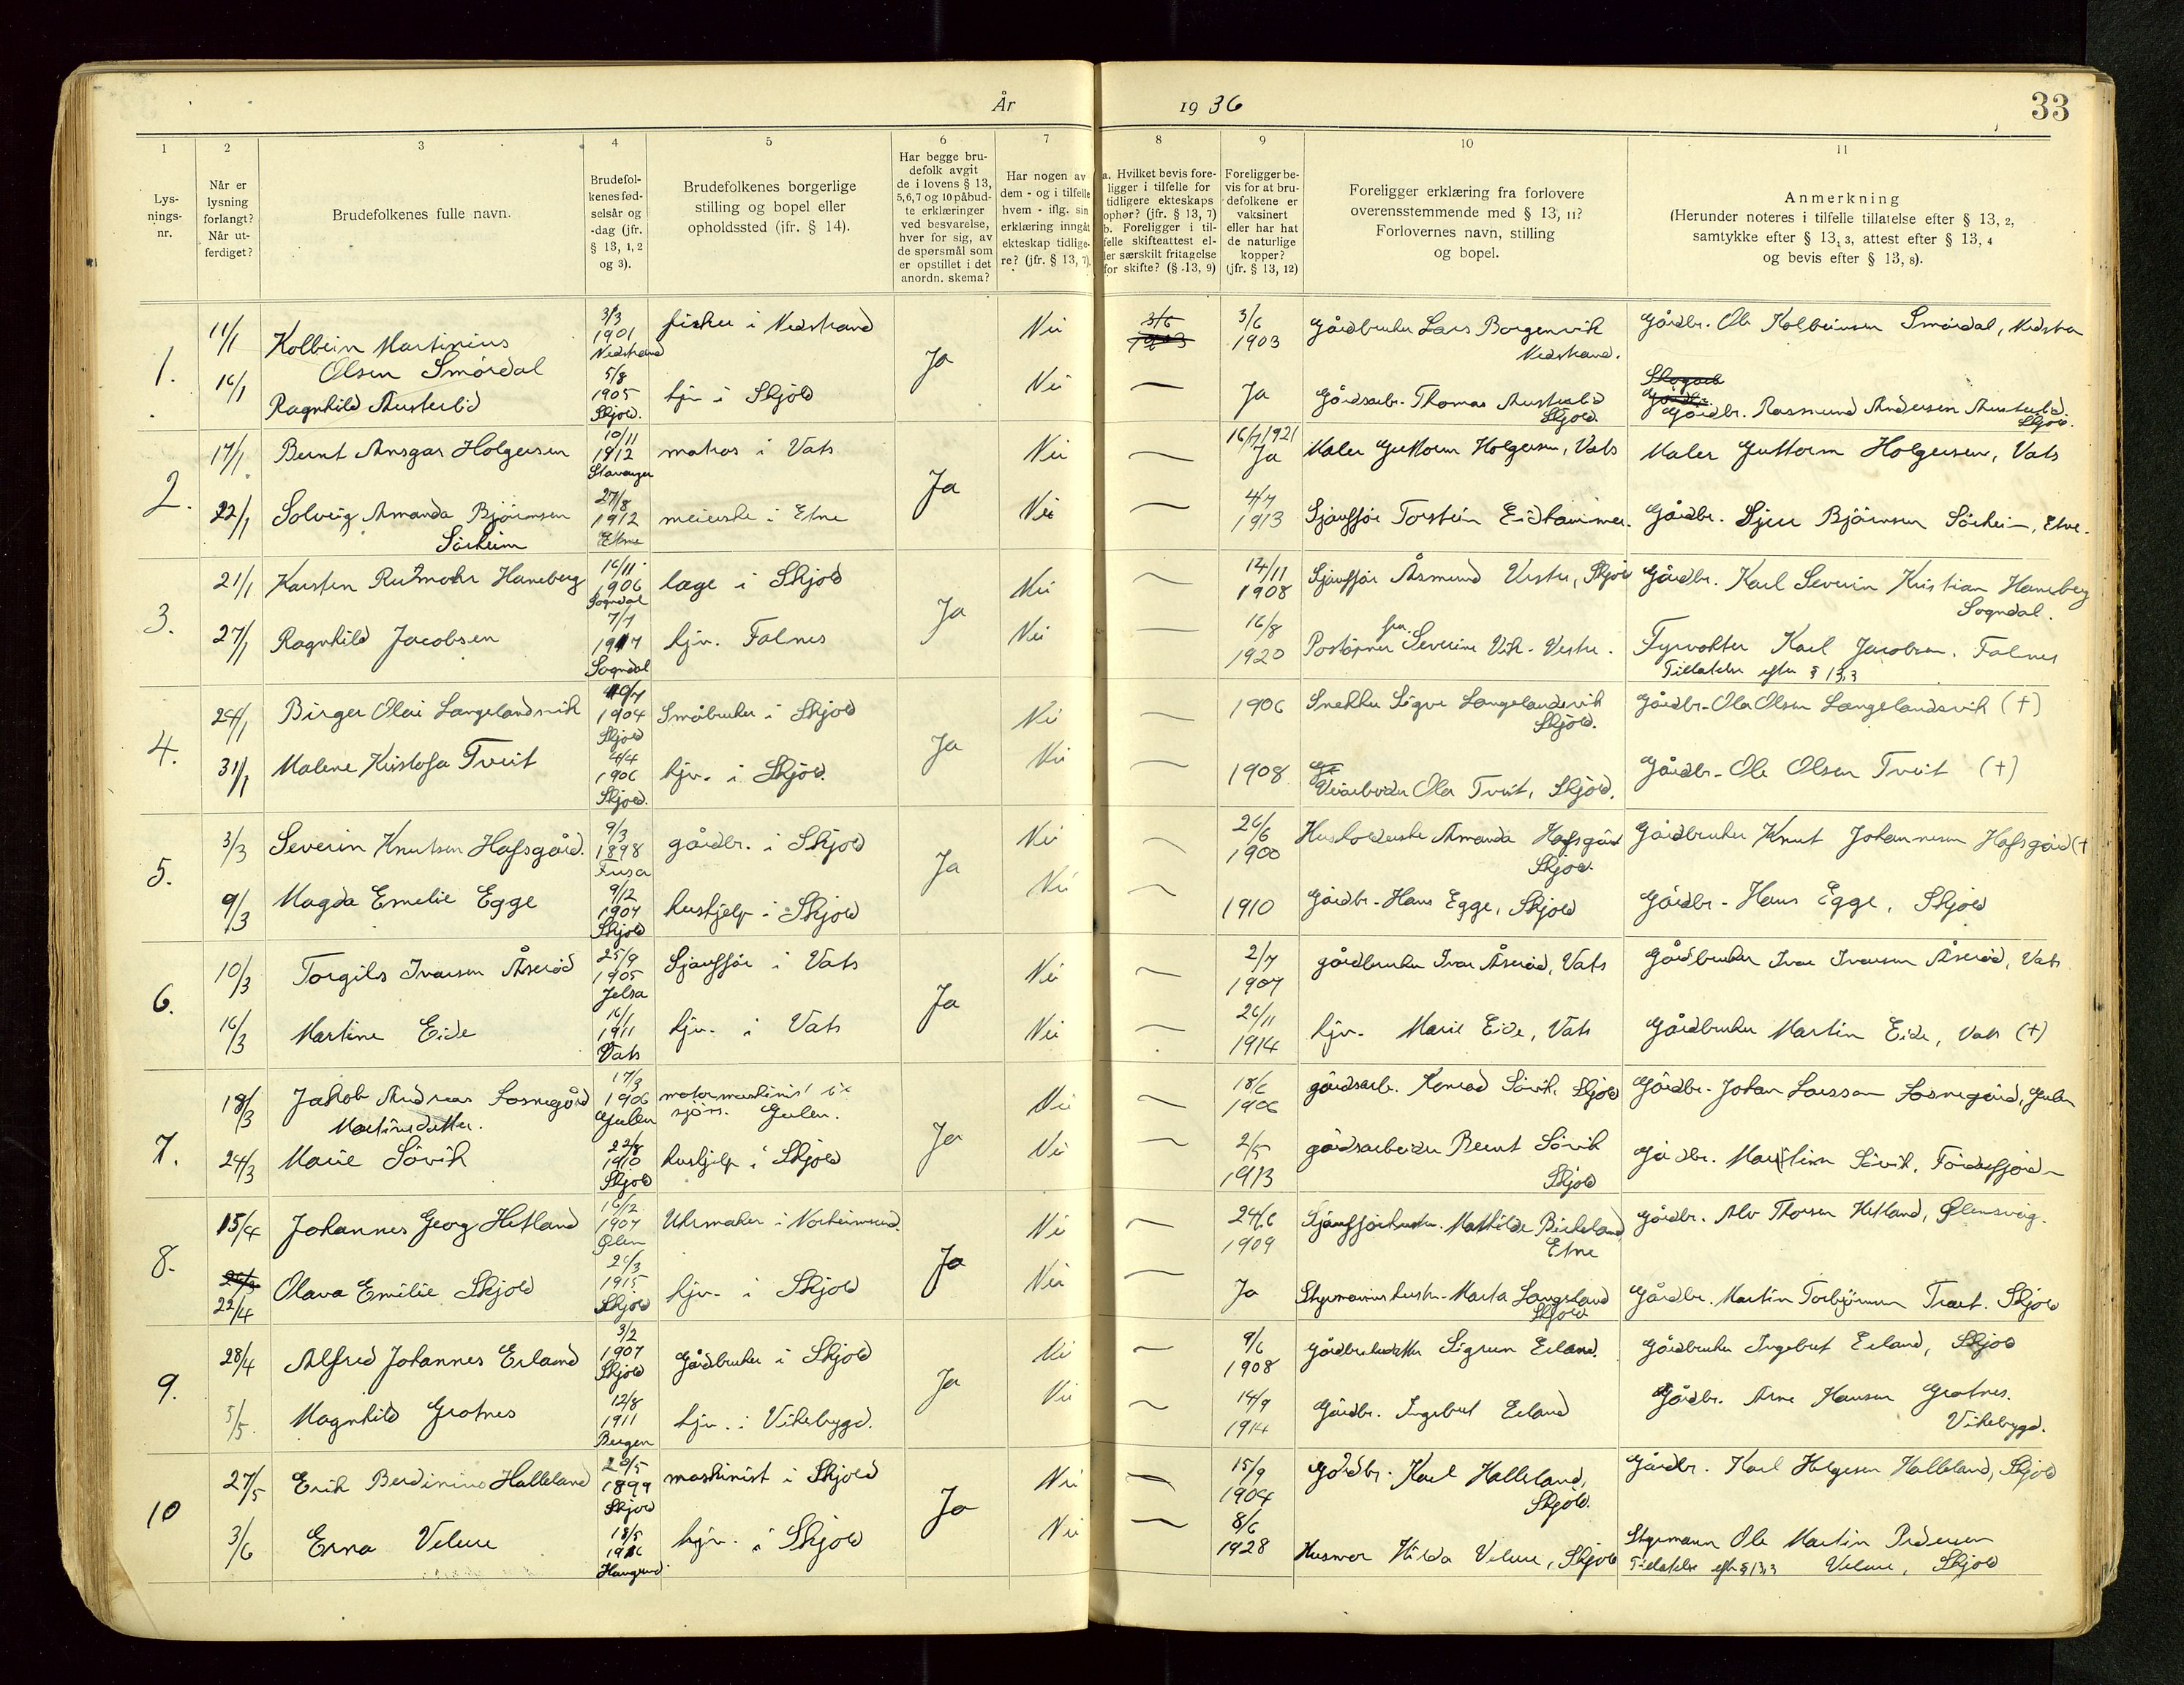 År 1936
33
1
2
3
4
5
6
7
8
9
10
11
Lys-
nings-
nr.
Når er
lysning
forlangt?
Når ut-
ferdiget?
Brudefolkenes fulle navn.
Brudefol-
kenes fød-
selsår og
-dag (jfr.
§ 13, 1, 2
og 3).
Brudefolkenes borgerlige
stilling og bopel eller
opholdssted (jfr. § 14).
Har begge bru-
defolk avgit
de i lovens § 13,
5,6,7 og 10 påbud-
te erklæringer
ved besvarelse,
hver for sig, av
de spørsmål som
er opstillet i det
anordn. skema?
Har nogen av
dem - og i tilfelle
hvem - iflg. sin
erklæring inngåt
ekteskap tidlige-
re? (jfr. § 13, 7).
a. Hvilket bevis fore-
ligger i tilfelle for
tidligere ekteskaps
ophør? (jfr. § 13, 7)
b. Foreligger i til-
felle skifteattest el-
ler særskilt fritagelse
for skifte? (§ 13, 9)
Foreligger be-
vis for at bru-
defolkene er
vaksinert
eller har hat
de naturlige
kopper?
(jfr. § 13, 12)
Foreligger erklæring fra forlovere
overensstemmende med § 13, 11?
Forlovernes navn, stilling
og bopel.
Anmerkning
(Herunder noteres i tilfelle tillatelse efter § 13, 2,
samtykke efter § 13, 3, attest efter § 13, 4
og bevis efter § 13, 8).
1.
11/1
Kolbein Martinius
Olsen Smördal
3/3
1901
Nedstrand
fisker i Nedstrand
Ja
Nei
3/6
1903
3/6
1903
Gårdbruker Lars Borgenvik
Nedstrand.
Gårdbr. Ole Kolbeinsen Smördal, Nedstra
16/1
Ragnhild Austerlid
5/8
1905
Skjold.
hjv. i Skjold
Nei
—
Ja
Gårdsarb. Thomas Austerlid
Skjold.
Gårdbr. Rasmund Andersen Austerlid.
Skjold.
2.
17/1
Bernt Ansgar Holgersen
10/11
1912
Stavanger
matros i Vats
Ja
Nei
—
16/7 1921
Ja
Maler Guttorm Holgersen, Vats
Maler Guttorm Holgersen, Vats
22/1
Solveig Amanda Bjørnsen
Sörheim
27/8
1912
Etne
meierske i Etne
Nei
—
4/7
1913
Sjauffør Torstein Eidhammer.
Gårdbr. Sjur Björnsen Sörheim, Etne.
3.
21/1
Karsten Rutmohr Haneberg
16/11
1906
Sogndal
læge i Skjold
Ja
Nei
—
14/11
1908
Sjauffør Åsmund Vestre, Skjold
Gårdbr. Karl Severin Kristian Haneberg
Sogndal.
27/1
Ragnhild Jacobsen
7/7
1917
Sogndal
hjv. Falnes
Nei
—
16/8
1920
Poståpner fru Severine Vik-Vestre.
Fyrvokter Karl Jacobsen. Falnes
Tillatelse efter § 13,3
4.
24/1
Birger Olai Langelandsvik
10/7
1904
Skjold
Småbruker i Skjold
Ja
Nei
—
1906
Snekker Sigve Langelandsvik
Skjold.
Gårdbr. Ola Olsen Langelandsvik (+)
31/1
Malene Kristofa Tveit
4/4
1906
Skjold.
hjv. i Skjold.
Nei
—
1908
Veiarbeider Ola Tveit, Skjold.
Gårdbr. Ole Olsen Tveit (+)
5.
3/3
Severin Knutsen Hafsgård.
9/3
1898
Fusa
gårdbr. i Skjold
Ja
Nei
—
26/6
1900
Husholderske Amanda Hafsgård
Skjold.
Gårdbruker Knut Johannesen Hafsgård (+
9/3
Magda Emelie Egge
9/12
1907
Skjold
hushjelp i Skjold
Nei
—
1910
Gårdbr. Hans Egge, Skjold
Gårdbr. Hans Egge, Skjold
6.
10/3
Torgils Ivarsen Åseröd
25/9
1905
Jelsa
Sjauffør i Vats
Ja
Nei
—
2/7
1907
gårdbruker Ivar Åseröd, Vats
Gårdbruker Ivar Ivarsen Åseröd, Vats
16/3
Martine Eide
16/1
1911
Vats
hjv. i Vats
Nei
—
26/11
1914
hjv. Marie Eide, Vats
Gårdbruker Martin Eide, Vats (+)
7.
18/3
Jakob Andreas Losnegård
17/3
1906
Gulen
motormaskinist
sjøs. Gulen.
Ja
Nei
—
18/6
1906
gårdsarb. Konrad Sövik, Skjold
Gårdbr. Johan Larsson Losnegård, Gulen
24/3
Martinedatter.
Marie Sövik
22/8
1910
Skjold
hushjelp i Skjold
Nei
—
2/5
1913
gårdsarbeider Bernt Sövik
Skjold
Gårdbr. Martin Sövik, Fördesfjorden
8.
15/4
Johannes Georg Hetland
16/12
1907
Ølen
Uhrmaker i Norheimsund.
Ja
Nei
—
24/6
1909
Sjaufførhustru. Mathilde Birkeland
Etne
Gårdbr. Alv Thorsen Hetland, Ølensvåg.
22/4
Olava Emilie Skjold
26/3
1915
Skjold
hjv. i Skjold
Nei
—
Ja
Styrmannshustru Marta Langeland
Skjold
Gårdbr. Martin Torbjörnsen Tract. Skjold
9.
28/4
Alfred Johannes Erland
3/2
1907
Skjold
Gårdbruker i Skjold
Ja
Nei
—
9/6
1908
Gårdbrukerdatter Sigrun Erland.
Gårdbruker Ingebret Erland, Skjold
5/5.
Magnhild Grotnes
12/8
1911
Bergen
hjv. i Vikebygd.
Nei
—
14/9
1914
Gårdbr. Ingebret Erland
Gårdbr. Arne Hansen Grotnes.
Vikebygd.
10
27/5
Erik Berdinius Halleland
20/5
1899
Skjold
maskinist i Skjold
Ja
Nei
—
15/9
1904
Gårdbr. Karl Halleland,
Skjold.
Gårdbr. Karl Helgesen Halleland, Skjold
3/6
Erna Velure
18/5
1916
Haugesund
hjv. i Skjold
Nei
—
8/6
1928
Husmor Hilda Velure, Skjold
Styrmann Ole Martin Pedersen
Tillatelse efter § 13,3 Velure, Skjold